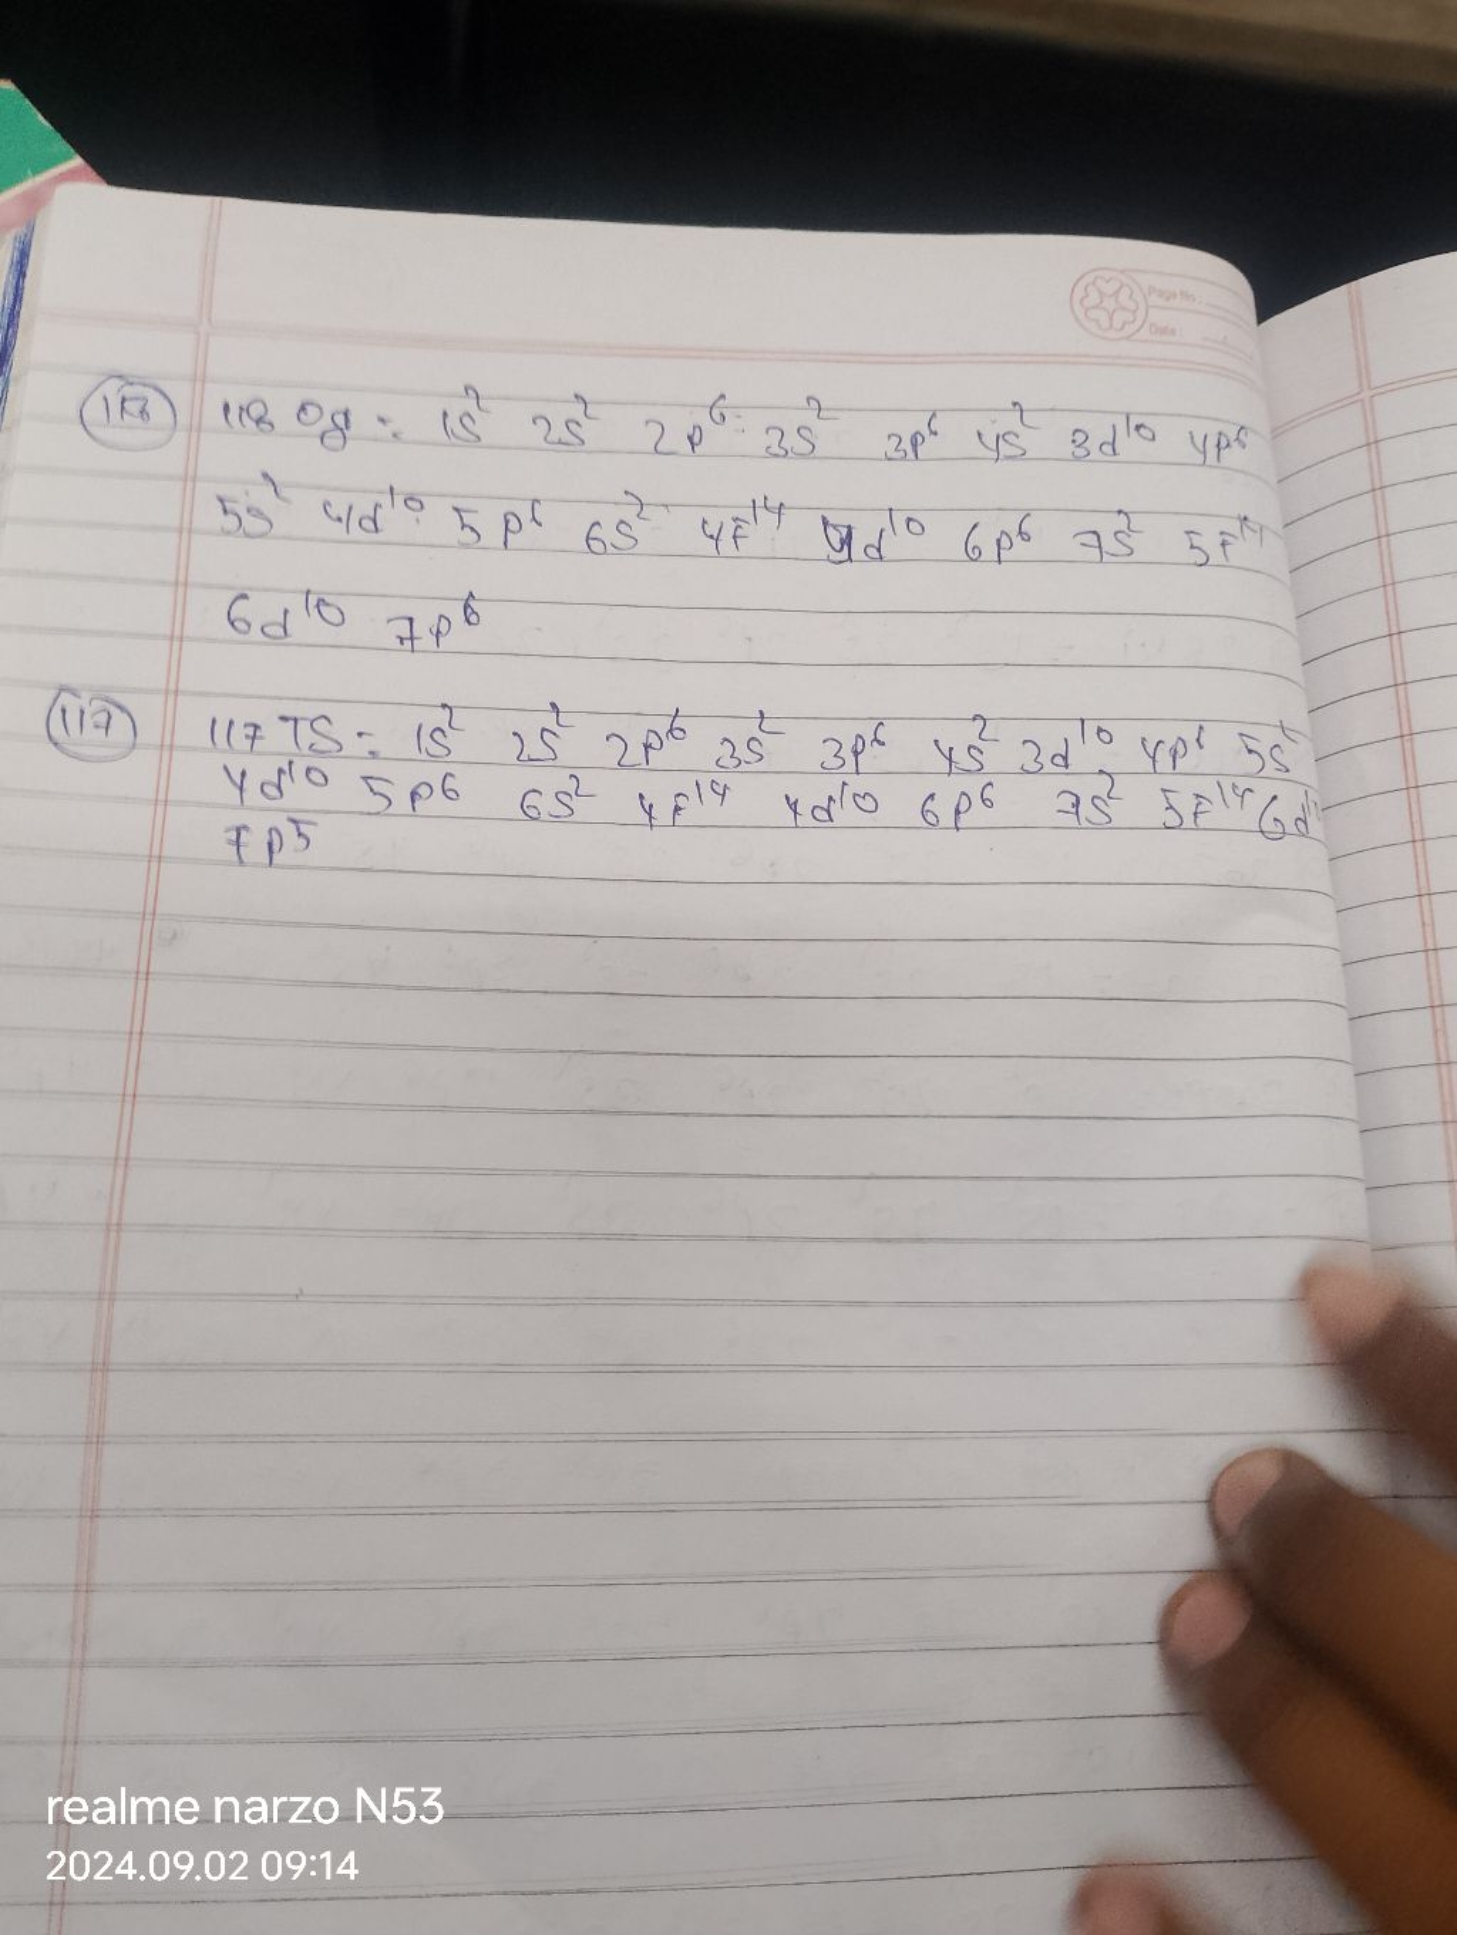 Page No.:
Date:
118 118 Og = 1S² 2S² 2p⁶ 3S² 3p⁶ 4S² 3d¹⁰ 4p⁶
5S² 4d¹⁰ 5p⁶ 6S² 4F¹⁴ d¹⁰ 6p⁶ 7S² 5F¹⁴
6d¹⁰ 7p⁶
117 117 TS = 1S² 2S² 2p⁶ 3S² 3p⁶ 4S² 3d¹⁰ 4p⁶ 5S²
4d¹⁰ 5p6 6S² 4F¹⁴ 4d¹⁰ 6p⁶ 7S² 5F¹⁴ 6d¹⁰
7p⁵
realme narzo N53
2024.09.02 09:14